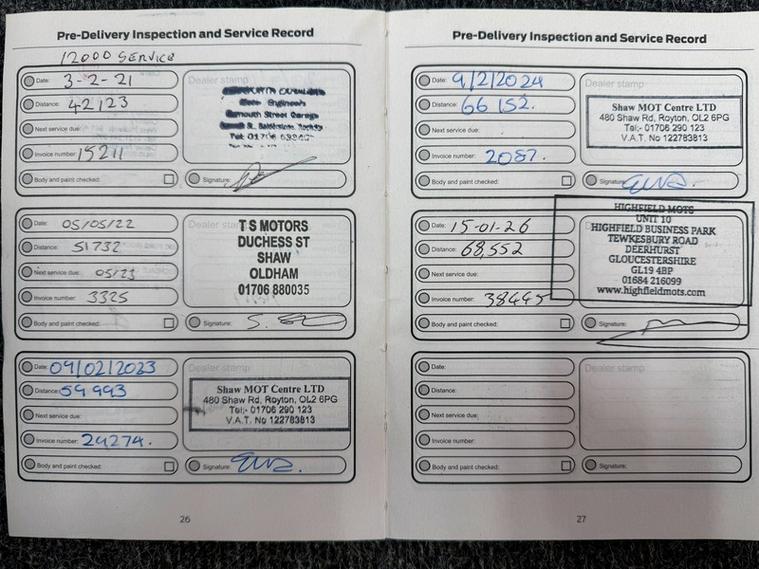 Pre-Delivery Inspection and Service Record
12000 SERVICE
Date: 3-2-21
Distance: 42123
Next service due:
Invoice number: 15211
Body and paint checked:
Dealer stamp
Street Garage
Tel 01706
Signature:
Date: 05/05/22
Distance: 51732
Next service due: 05/23
Invoice number: 3325
Body and paint checked:
Dealer stamp
T S MOTORS
DUCHESS ST
SHAW
OLDHAM
01706 880035
Signature:
Date: 09/02/2023
Distance: 59993
Next service due:
Invoice number: 24274.
Body and paint checked:
Dealer stamp
Shaw MOT Centre LTD
480 Shaw Rd, Royton, OL2 6PG
Tel;- 01706 290 123
V.A.T. No 122783813
Signature:
26
Pre-Delivery Inspection and Service Record
Date: 9/2/2024
Distance: 66152.
Next service due:
Invoice number: 2087.
Body and paint checked:
Dealer stamp
Shaw MOT Centre LTD
480 Shaw Rd, Royton, OL2 6PG
Tel;- 01706 290 123
V.A.T. No 122783813
Signature:
Date: 15-01-26
Distance: 68,552
Next service due:
Invoice number: 38445
Body and paint checked:
Dealer stamp
HIGHFIELD MOTS
UNIT 10
HIGHFIELD BUSINESS PARK
TEWKESBURY ROAD
DEERHURST
GLOUCESTERSHIRE
GL19 4BP
01684 216099
www.highfieldmots.com
Signature:
Date:
Distance:
Next service due:
Invoice number:
Body and paint checked:
Dealer stamp
Signature:
27